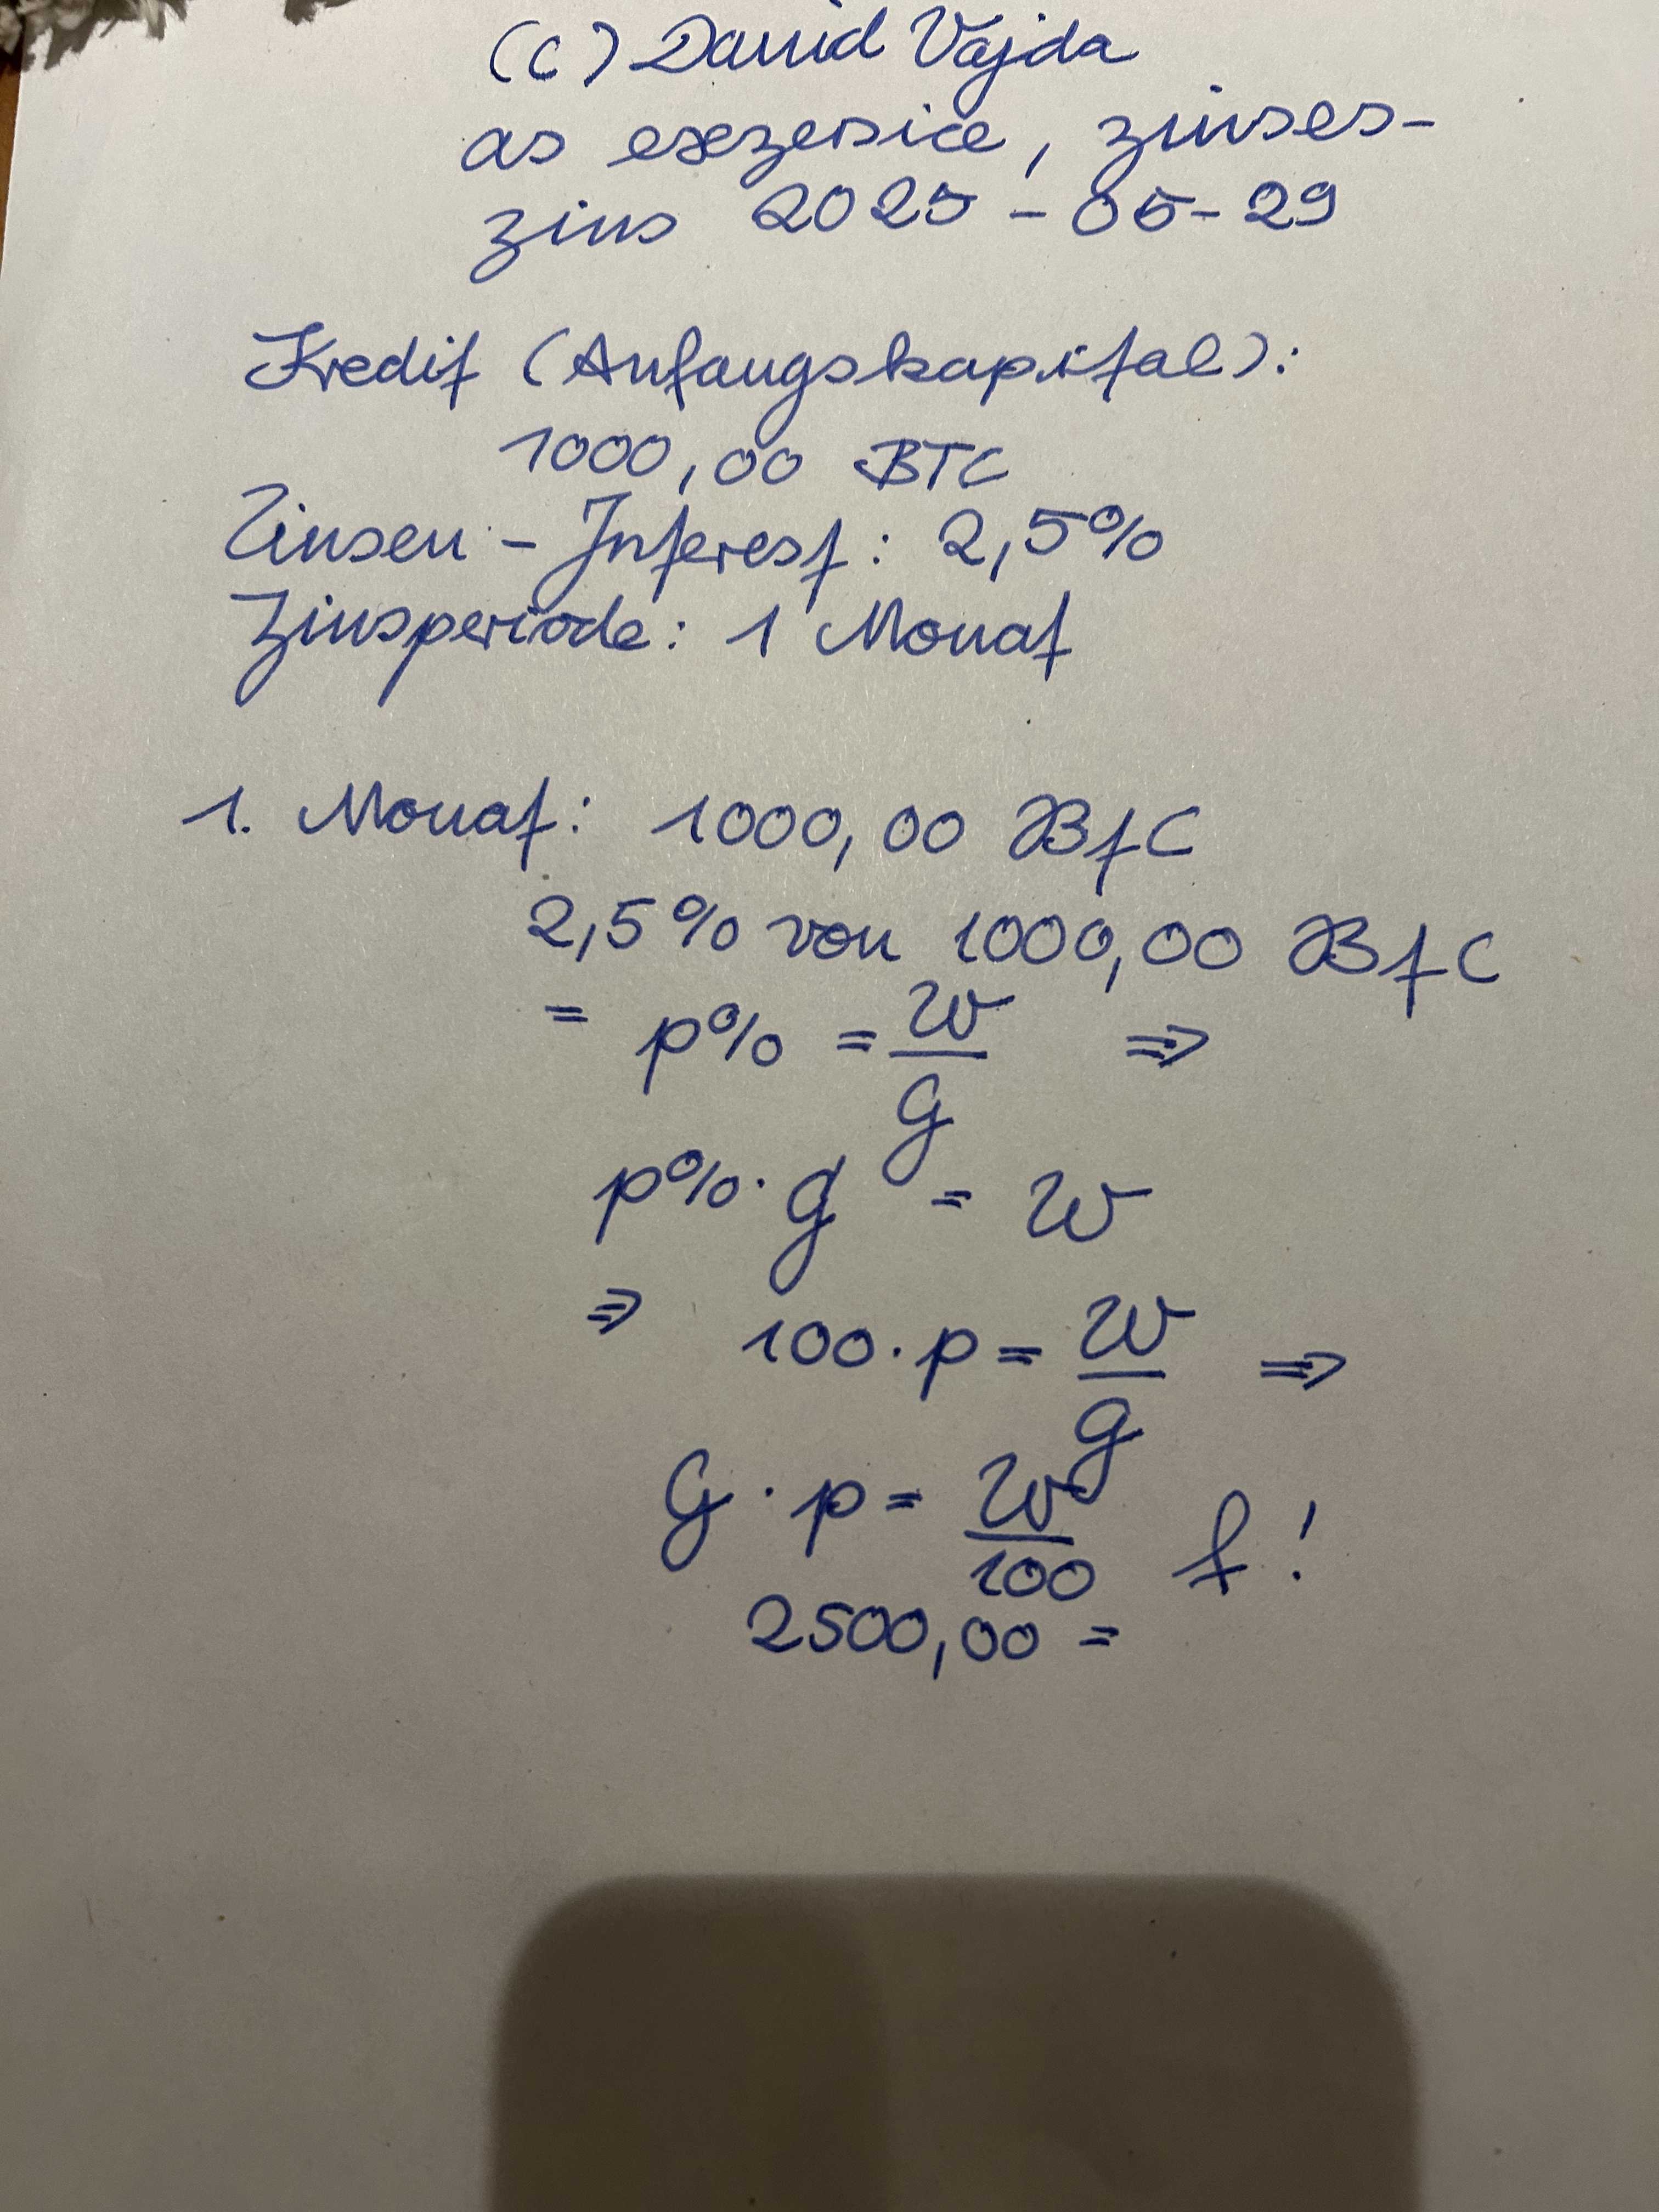 (c) David Vajda
as exezersice, zinses-
zins 2025-05-29
Kredit (Anfangskapital):
1000,00 BTC
Zinsen - Interest: 2,5%
Zinsperiode: 1 Monat
1. Monat: 1000,00 BtC
2,5% von 1000,00 BtC
= p% = W/G ⇒
p% · G = W
⇒ 100 · p = W/G ⇒
G · p = W/100 f!
2500,00 =